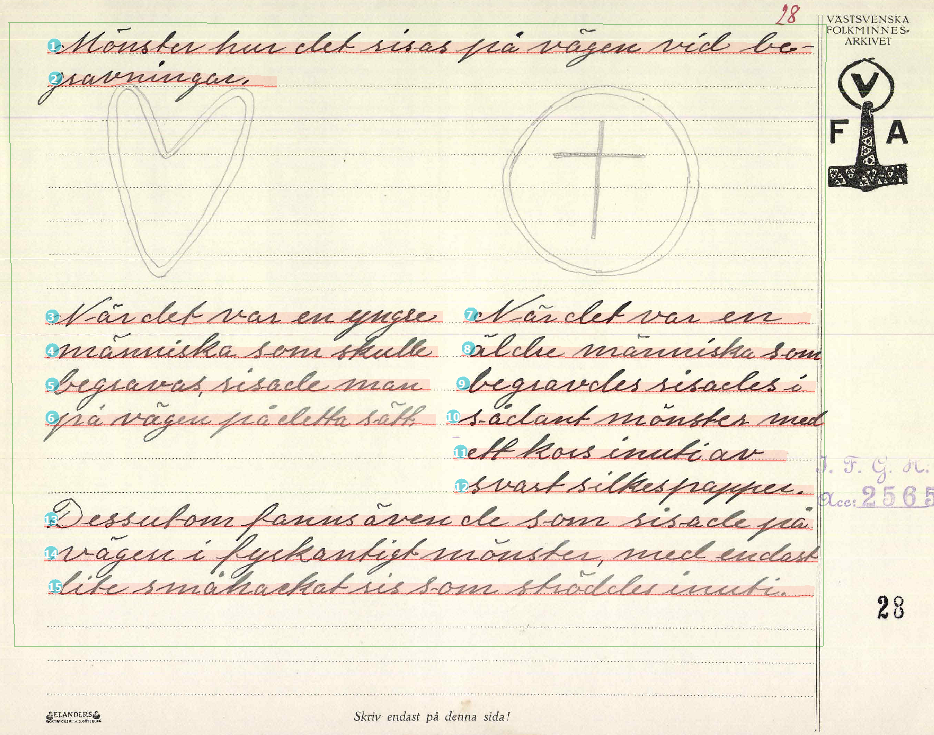 28
VÄSTSVENSKA
FOLKMINNES-
ARKIVET
V
F A
1 Mönster hur det risas på vägen vid be-
2 gravningar.
3 När det var en yngre
4 människa som skulle
5 begravas, risade man
6 på vägen på detta sätt.
7 När det var en
8 äldre människa som
9 begravdes risades i
10 sådant mönster med
11 ett kors inuti av
12 svart silkespapper.
13 Dessutom fanns även de som risade på
14 vägen i fyrkantigt mönster, med endast
15 lite småhackat ris som ströddes inuti.
I. F. G. H.
Acc: 2565
28
ELANDERS
Skriv endast på denna sida!